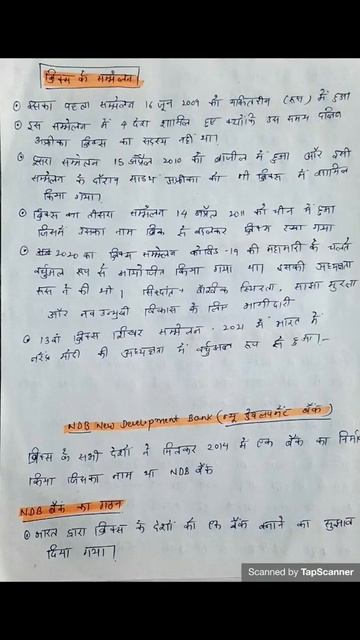 ब्रिक्स के सम्मेलन
इसका पहला सम्मेलन 16 जून 2009 को येकतिरीना (रूस) में हुआ
इस सम्मेलन में 4 देश शामिल हुए क्योंकि उस समय दक्षिण
अफ्रीका ब्रिक्स का सदस्य नहीं था।
दूसरा सम्मेलन 15 अप्रैल 2010 को ब्राजील में हुआ और इसी
सम्मेलन के दौरान साउथ अफ्रीका को भी ब्रिक्स में शामिल
किया गया।
ब्रिक्स का तीसरा सम्मेलन 14 अप्रैल 2011 को चीन में हुआ
जिसमें उसका नाम ब्रिक से बदलकर ब्रिक्स रखा गया
2020 का ब्रिक्स सम्मेलन कोविड -19 की महामारी के चलते
वर्चुअल रूप से आयोजित किया गया था। इसकी अध्यक्षता
रूस ने की थी। सिद्धांत - वैश्विक स्थिरता, साझा सुरक्षा
और नव उन्मुखी विकास के लिए भागीदारी
13वां ब्रिक्स शिखर सम्मेलन - 2021 में भारत में
नरेंद्र मोदी की अध्यक्षता में वर्चुअल रूप से हुआ।
NDB New Development Bank (न्यू डेवलपमेंट बैंक)
ब्रिक्स के सभी देशों ने मिलकर 2014 में एक बैंक का निर्माण
किया जिसका नाम था NDB बैंक
NDB बैंक का गठन
भारत द्वारा ब्रिक्स के देशों को एक बैंक बनाने का सुझाव
दिया गया।
Scanned by TapScanner